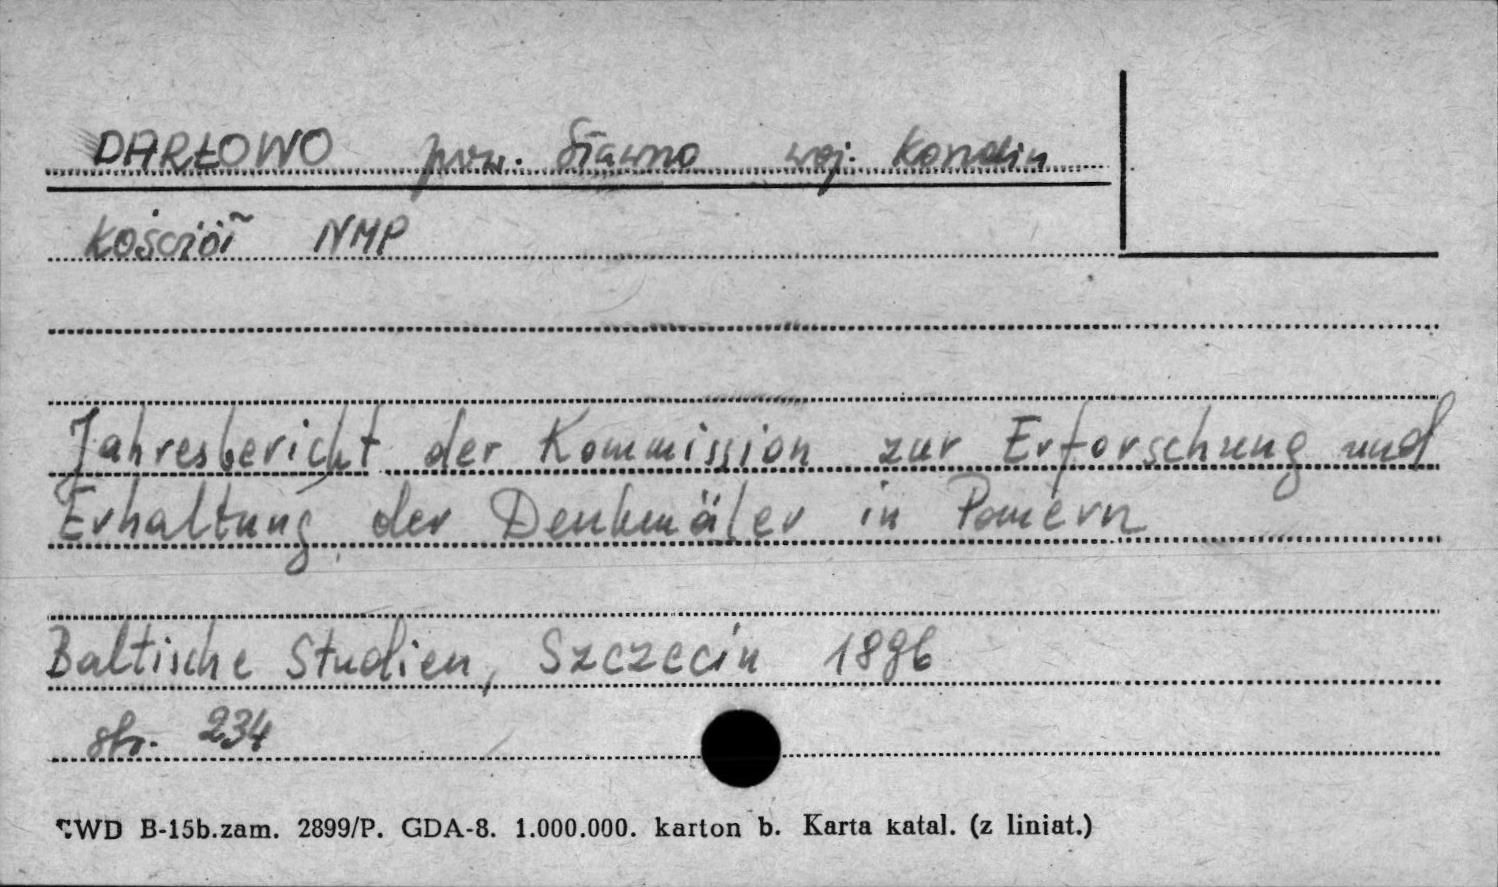 DARŁOWO pow. Sławno woj. Koszalin
Kościół NMP
Jahresbericht der Kommission zur Erforschung und
Erhaltung der Denkmäler in Pomern
Baltische Studien, Szczecin 1896
str. 234
CWD B-15b.zam. 2899/P. GDA-8. 1.000.000. karton b. Karta katal. (z liniat.)